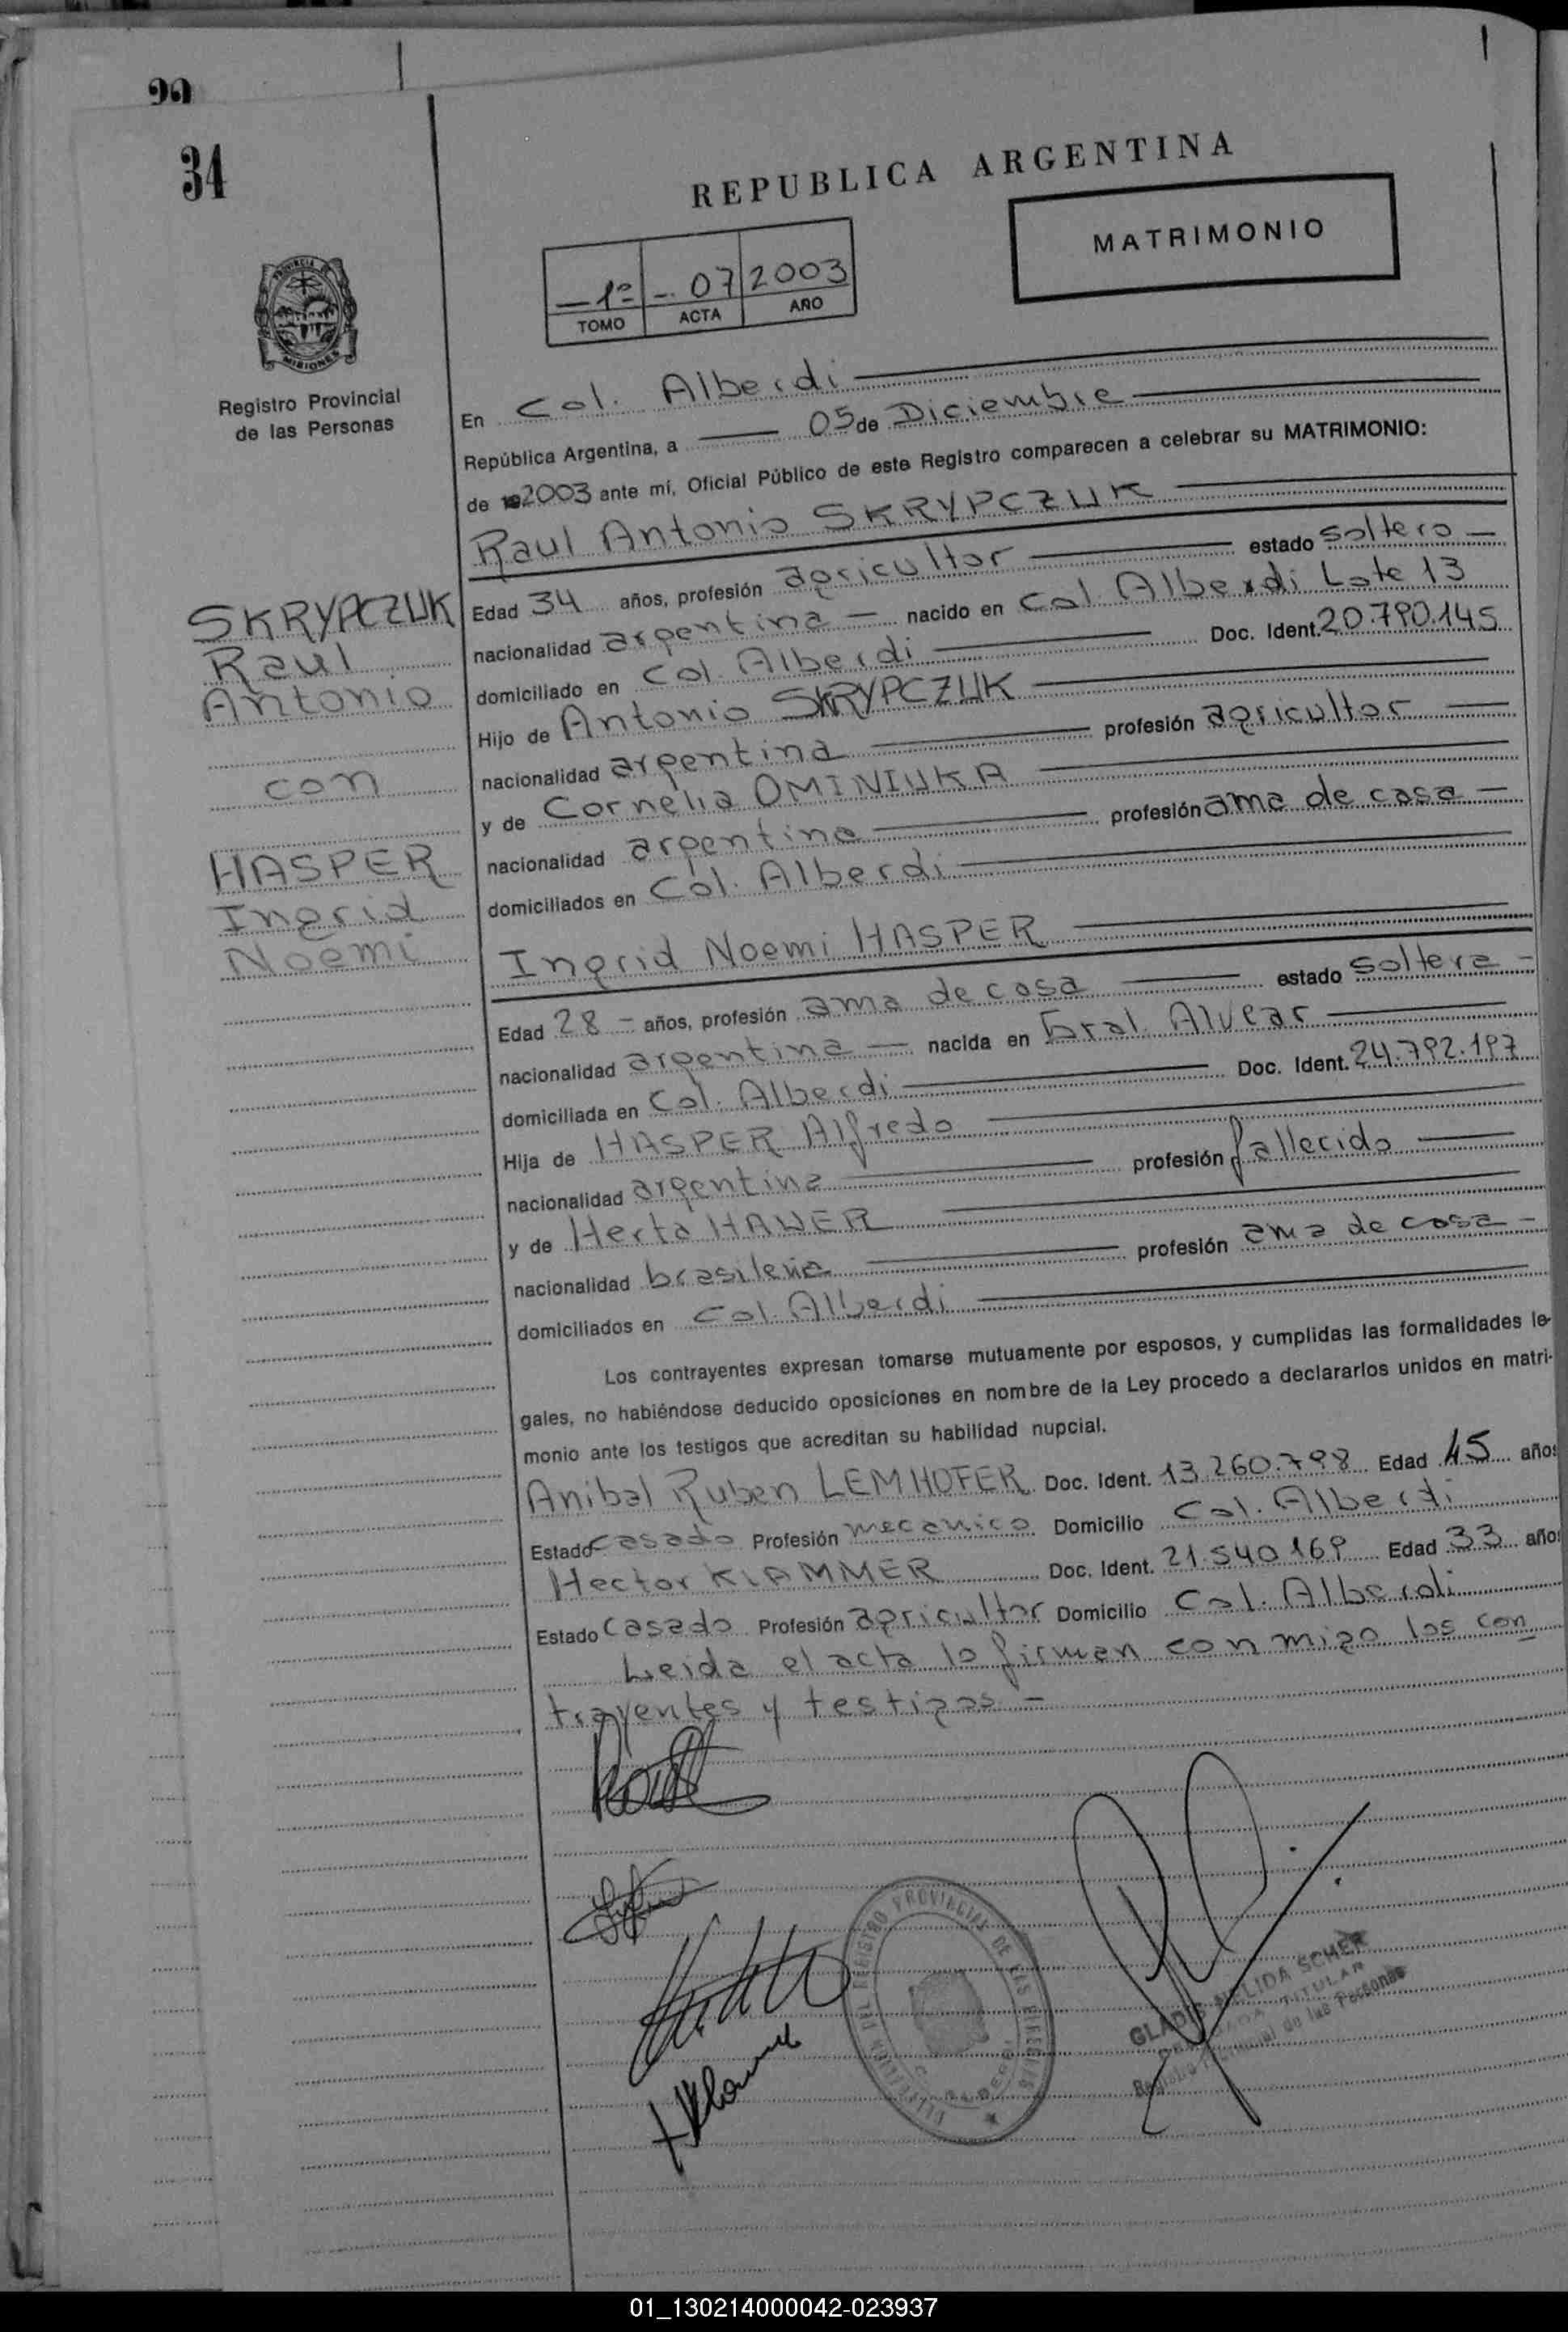 34
REPUBLICA ARGENTINA
MATRIMONIO
—1º —. 07 2003
TOMO ACTA AÑO
PROVINCIA DE
MISIONES
Registro Provincial
de las Personas
En Col. Alberdi
República Argentina, a 05 de Diciembre
de 2003 ante mí, Oficial Público de este Registro comparecen a celebrar su MATRIMONIO:
Raul Antonio SKRYPCZUK
Edad 34 años, profesión agricultor estado soltero —
nacionalidad argentina — nacido en Col. Alberdi Lote 13
domiciliado en Col. Alberdi Doc. Ident. 20.790.145
Hijo de Antonio SKRYPCZUK
nacionalidad argentina profesión agricultor
y de Cornelia OMINIUKA
nacionalidad argentina profesión ama de casa —
domiciliados en Col. Alberdi
SKRYPCZUK
Raul
Antonio
con
HASPER
Ingrid
Noemi
Ingrid Noemi HASPER
Edad 28 – años, profesión ama de casa estado soltera –
nacionalidad argentina — nacida en Gral. Alvear
domiciliada en Col. Alberdi Doc. Ident. 24.792.197
Hija de HASPER Alfredo
nacionalidad argentina profesión fallecido
y de Herta HAUER
nacionalidad brasileña profesión ama de casa –
domiciliados en Col. Alberdi
Los contrayentes expresan tomarse mutuamente por esposos, y cumplidas las formalidades le-
gales, no habiéndose deducido oposiciones en nombre de la Ley procedo a declararlos unidos en matri-
monio ante los testigos que acreditan su habilidad nupcial.
Anibal Ruben LEMHOFER Doc. Ident. 13.260.798 Edad 45 años
Estado casado Profesión mecanico Domicilio Col. Alberdi
Hector KLAMMER Doc. Ident. 21.540.169 Edad 33 años
Estado Casado Profesión agricultor Domicilio Col. Alberdi
Leida el acta lo firman conmigo los con
trayentes y testigos –
REGISTRO PROVINCIAL DE LAS PERSONAS
GLADIS NELIDA SCHER
TITULAR
Registro Provincial de las Personas
01_130214000042-023937